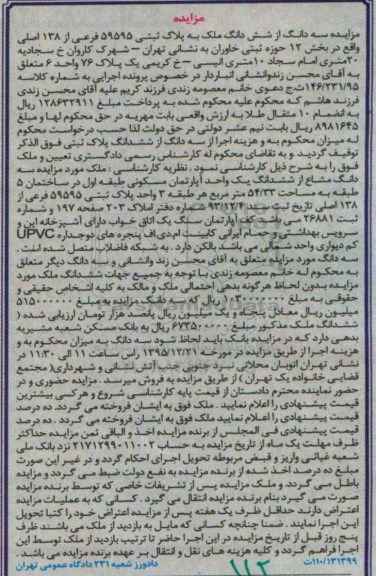 مزایده
مزایده سه دانگ از شش دانگ ملک به پلاک ثبتی ۵۹۵۹۵ فرعی از ۱۳۸ اصلی
واقع در بخش ۱۲ حوزه ثبتی خاوران به نشانی تهران – شهرک کاروان خ سجادیه
۲۰متری امام سجاد ۱۰متری انیسی – خ کریمی یک پلاک ۷۶ واحد ۶ متعلق
به آقای محسن زندوانشانی انباردار در خصوص پرونده اجرایی به شماره کلاسه
۱۴۶/۲۳۱/۹۵ث.ج دعوی خانم معصومه زندی فرزند کریم علیه آقای محسن زندی
فرزند هاشم که محکوم علیه محکوم شده به پرداخت مبلغ ۱۲۸۶۳۲۹۱۱ ریال
به انضمام ۱۰ مثقال طلا به ارزش واقعی بابت مهریه در حق محکوم لها و مبلغ
۸۹۸۱۶۴۵ ریال بابت نیم عشر دولتی در حق دولت لذا حسب درخواست محکوم
له میزان محکوم به و هزینه اجرا از سه دانگ از ششدانگ پلاک ثبتی فوق الذکر
توقیف گردید. و به تقاضای محکوم له کارشناس رسمی دادگستری تعیین و ملک
فوق را به شرح ذیل کارشناسی نمود . نظریه کارشناسی : ملک مورد مزایده سه
دانگ مشاع از ششدانگ یک واحد آپارتمان مسکونی طبقه اول در ساختمان ۵
طبقه به مساحت ۵۴/۳۳ متر مربع هر طبقه ۲ واحد پلاک ثبتی ۵۹۵۹۵ فرعی از
۱۳۸ اصلی تاریخ ثبت سند ۹۳/۱۲/۹ شماره دفتر املاک ۲۰۳ صفحه ۱۹۷ و شماره
ثبت ۲۶۸۸۱ می باشد کف آپارتمان سنگ یک اتاق خواب دارای آشپزخانه اپن و
سرویس بهداشتی و حمام ایرانی کابینت ام.دی.اف پنجره های دوجداره UPVC
کم دیواری واحد شمالی می باشد بالکن دارد . به شبکه فاضلاب متصل شده است .
سه دانگ مورد مزایده متعلق به آقای محسن زند وانشانی و سه دانگ دیگر متعلق
به محکوم له خانم معصومه زندی با توجه به جمیع جهات ششدانگ ملک مورد
مزایده بدون لحاظ هرگونه بدهی احتمالی ملک و مالک به کلیه اشخاص حقیقی و
حقوقی به مبلغ ریال که سه دانگ مزایده به مبلغ ۵۱۵۰۰۰۰۰۰
میلیون ریال معادل پنجاه و یک میلیون ریال پانصد هزار تومان ارزیابی شده (
ششدانگ ملک مذکور مبلغ ۶۷۳۵۰۰۰۰ ریال به بانک مسکن شعبه مشیریه
بدهی دارد که در مزایده باید لحاظ شود سه دانگ به میزان محکوم به و
هزینه اجرا از طریق مزایده در مورخه ۱۳۹۵/۱۲/۲۱ راس ساعت ۱۱ الی ۱۱:۳۰ در
نشانی تهران اتوبان محلاتی نبرد جنوبی جنب آتش نشانی و شهرداری(مجتمع
قضایی خانواده یک تهران ) از طریق مزایده به فروش میرسد . مزایده حضوری و در
حضور نماینده محترم دادستان از قیمت پایه کارشناسی شروع و هر کسی بیشترین
قیمت پیشنهادی را اعلام نماید . ملک فوق به ایشان فروخته می گردد. ده درصد
قیمت پیشنهادی را اعلام نماید ملک فوق به ایشان فروخته می گردد . ده درصد
قیمت پیشنهادی فی المجلس از برنده مزایده اخذ و الباقی ثمن مزایده حداکثر
ظرف مهلت یک ماه از تاریخ مزایده به حساب ۲۱۷۱۲۹۹۰۱۱۰۰۲ نزد بانک ملی
شعبه غیاثی واریز و قبض مربوطه تحویل اجرای احکام گردد و در غیر این صورت
مبلغ ده درصد اخذ شده از برنده مزایده به نفع دولت ضبط می گردد و مزایده
باطل می گردد. و ملک مزایده پس از تشریفات خاصی که توسط برنده مزایده
صورت می گیرد بنام برنده مزایده انتقال می گیرد . کسانی که به عملیات مزایده
اعتراض دارند حداقل ظرف یک هفته پس از مزایده اعتراض خود را کتبا تحویل
این اجرا نمایند . ضمنا چنانچه کسانی که مایل به بازدید از ملک می باشند ظرف
پنج روز قبل از تاریخ مزایده در این اجرا حاضر تا ترتیب بازدید از ملک توسط این
اجرا فراهم گردد و کلیه هزینه های نقل و انتقال بر عهده برنده مزایده می باشد .
۱۱۰/۱۳۱۳۹۹/ت دادورز شعبه ۲۳۱ دادگاه عمومی تهران
۱۱۲